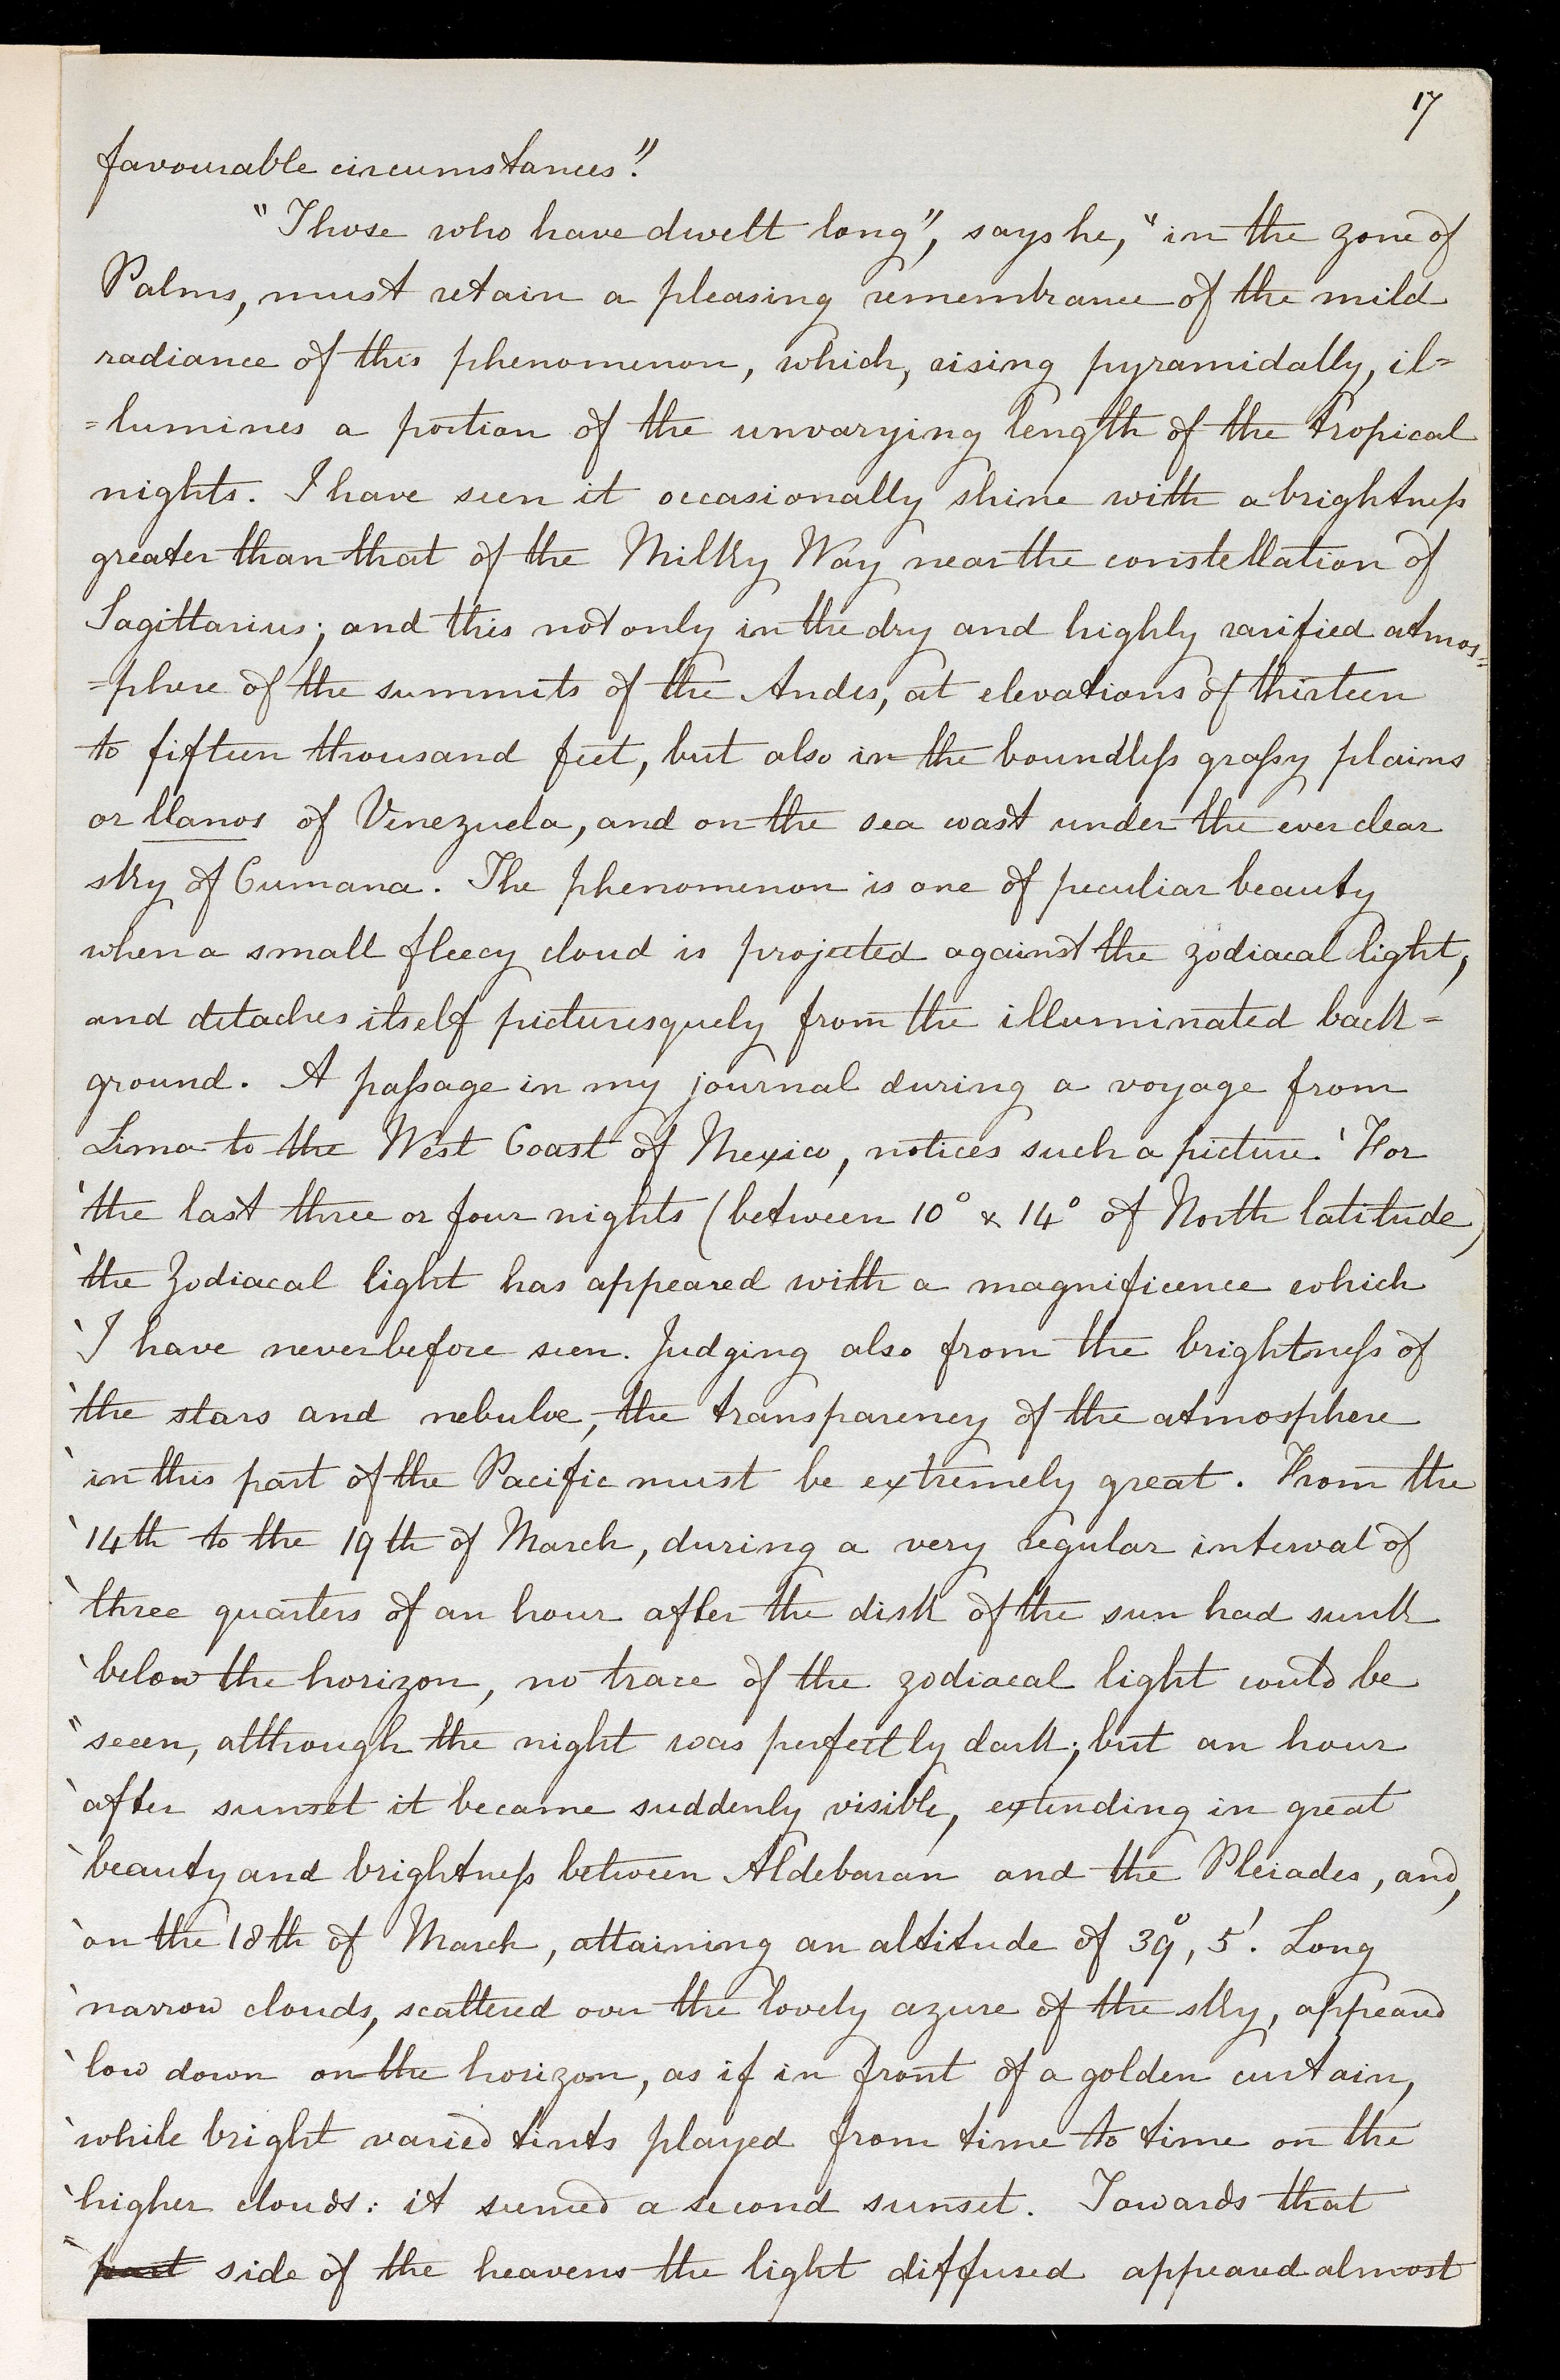 17
favourable circumstances."
"Those who have dwelt long", says he, "in the zone of
Palms, must retain a pleasing remembrance of the mild
radiance of this phenomenon, which, rising pyramidally, il=
=lumines a portion of the unvarying length of the tropical
nights. I have seen it occasionally shine with a brightneſs
greater than that of the Milky Way near the constellation of
Sagittarius; and this not only in the dry and highly rarified atmos=
=phere of the summits of the Andes, at elevations of thirteen
to fifteen thousand feet, but also in the boundleſs graſsy plains
or llanos of Venezuela, and on the sea coast under the ever clear
sky of Cumana. The phenomenon is one of peculiar beauty
when a small fleecy cloud is projected against the zodiacal light,
and detaches itself picturesquely from the illuminated back=
ground. A paſsage in my journal during a voyage from
Lima to the West Coast of Mexico, notices such a picture. 'For
'the last three or four nights (between 10° & 14° of North latitude)
'the Zodiacal light has appeared with a magnificence which
'I have never before seen. Judging also from the brightneſs of
'the stars and nebulœ, the transparency of the atmosphere
'in this part of the Pacific must be extremely great. From the
'14th to the 19th of March, during a very regular interval of
'three quarters of an hour after the disk of the sun had sunk
'below the horizon, no trace of the zodiacal light could be
"seeen, although the night was perfectly dark; but an hour
'after sunset it became suddenly visible, extending in great
'beauty and brightneſs between Aldebaran and the Pleiades, and,
'on the 18th of March, attaining an altitude of 39°, 5'. Long
'narrow clouds, scattered over the lovely azure of the sky, appeared
'low down on the horizon, as if in front of a golden curtain,
'while bright varied tints played from time to time on the
'higher clouds: it seemed a second sunset. Towards that
"part side of the heavens the light diffused appeared almost